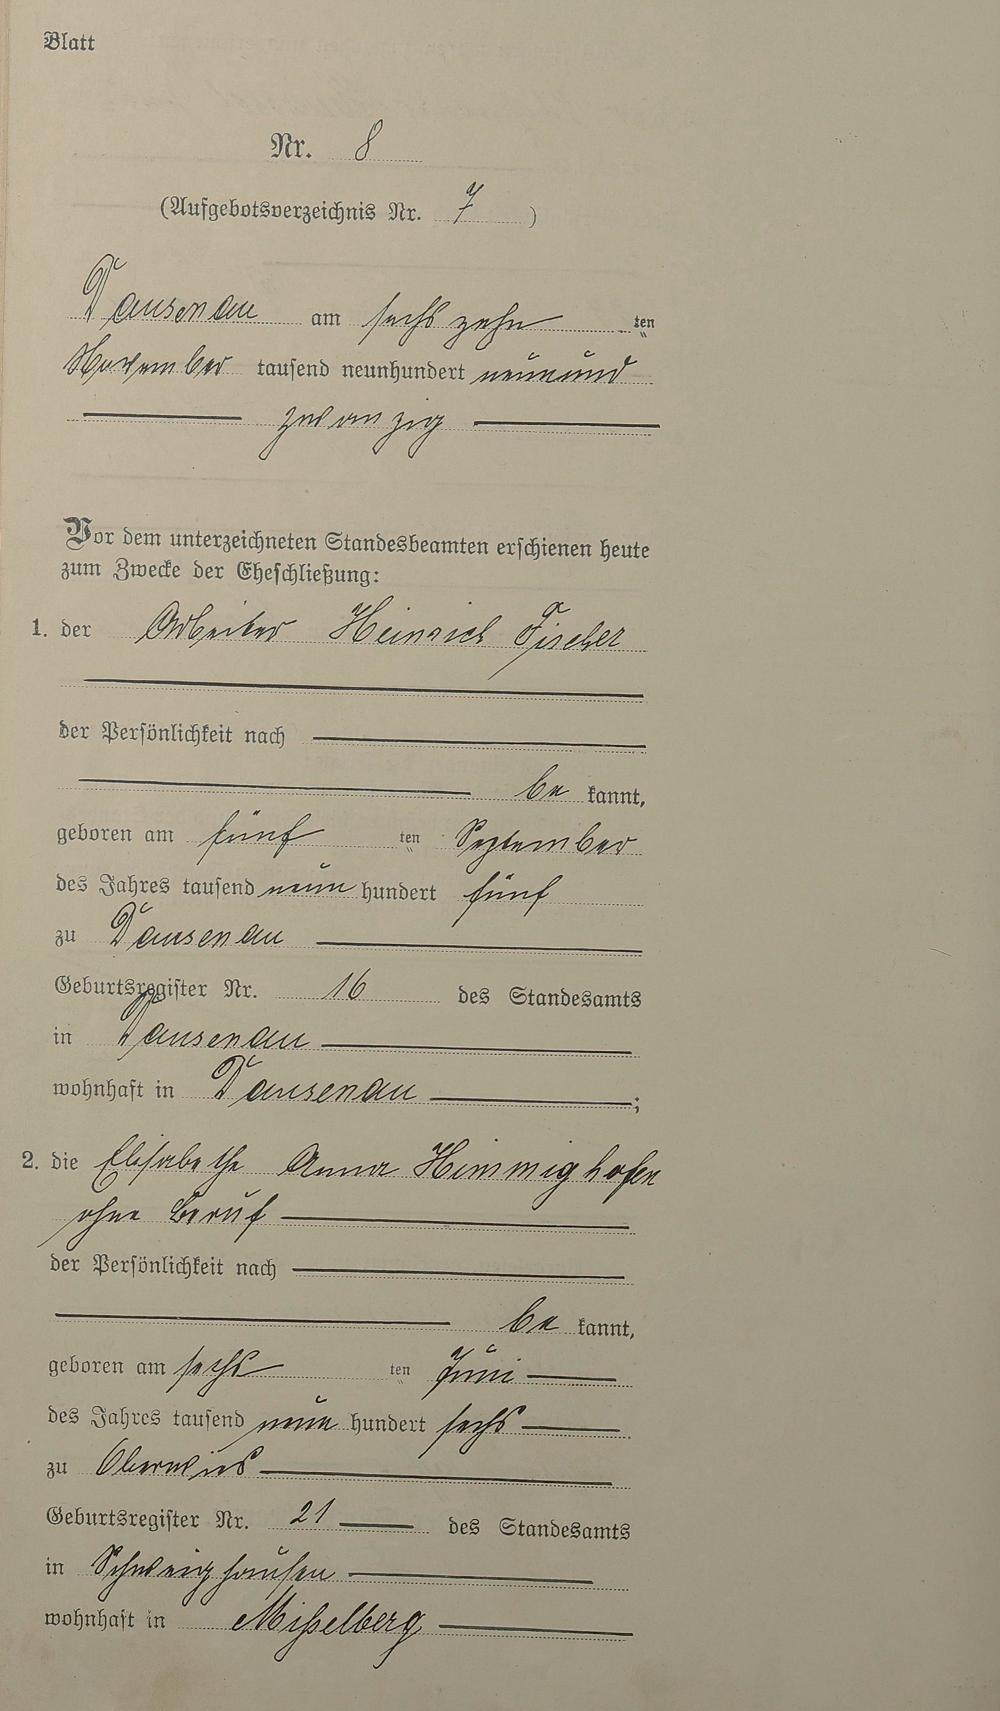 Blatt
Nr. 8
(Aufgebotsverzeichnis Nr. 7 )
Dausenau am sechszehn ten
November tausend neunhundert neunund
zwanzig
Vor dem unterzeichneten Standesbeamten erschienen heute
zum Zwecke der Eheschließung:
1. der Arbeiter Heinrich Fischer
der Persönlichkeit nach
be kannt,
geboren am fünf ten September
des Jahres tausend neun hundert fünf
zu Dausenau
Geburtsregister Nr. 16 des Standesamts
in Dausenau
wohnhaft in Dausenau ;
2. die Elisabethe Anna Himmighofen
ohne Beruf
der Persönlichkeit nach
be kannt,
geboren am sechs ten Juni
des Jahres tausend neun hundert sechs
zu Oberwies
Geburtsregister Nr. 21 des Standesamts
in Schweighausen
wohnhaft in Misselberg